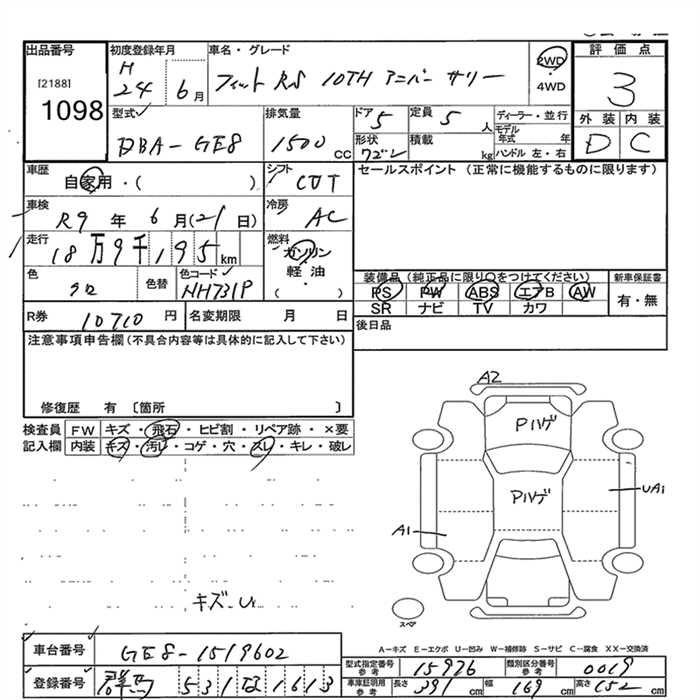 出品番号 初度登録年月 車名・グレード 2WD ・ 4WD 評価点
[2188] 1098 H 24 6月 フィット RS 10TH アニバーサリー 3
型式 排気量 ドア 5 定員 5人 ディーラー・並行 外装 内装
DBA-GE8 1500cc 形状 ワゴン 積載 kg モデル年式 年 ハンドル 左・右 D C
車歴 自家用・( ) シフト CVT セールスポイント (正常に機能するものに限ります)
車検 R9年6月(21日) 冷房 AC
走行 18万9千195km 燃料 ガソリン 軽油 ( )
色 クロ 色替 色コード NH731P 装備品(純正品に限り○をつけてください) 新車保証書
PS PW ABS エアB AW 有・無
SR ナビ TV カワ
R券 10710円 名変期限 月 日 後日品
注意事項申告欄(不具合内容等は具体的に記入して下さい)
修復歴 有 〔箇所 〕
検査員 FW キズ・飛石・ヒビ割・リペア跡・×要
記入欄 内装 キズ・汚レ・コゲ・穴・スレ・キレ・破レ
A2
Pハゲ
Pハゲ
UA1
A1
キズ-U
スペア
A-キズ E-エクボ U-凹み W-補修跡 S-サビ C-腐食 XX-交換済
車台番号 GE8-1519602 型式指定番号 参考 15976 類別区分番号 参考 0019
登録番号 群馬 531 な 1613 車庫証明用 参考 長さ 391 cm 幅 169 cm 高さ 152 cm